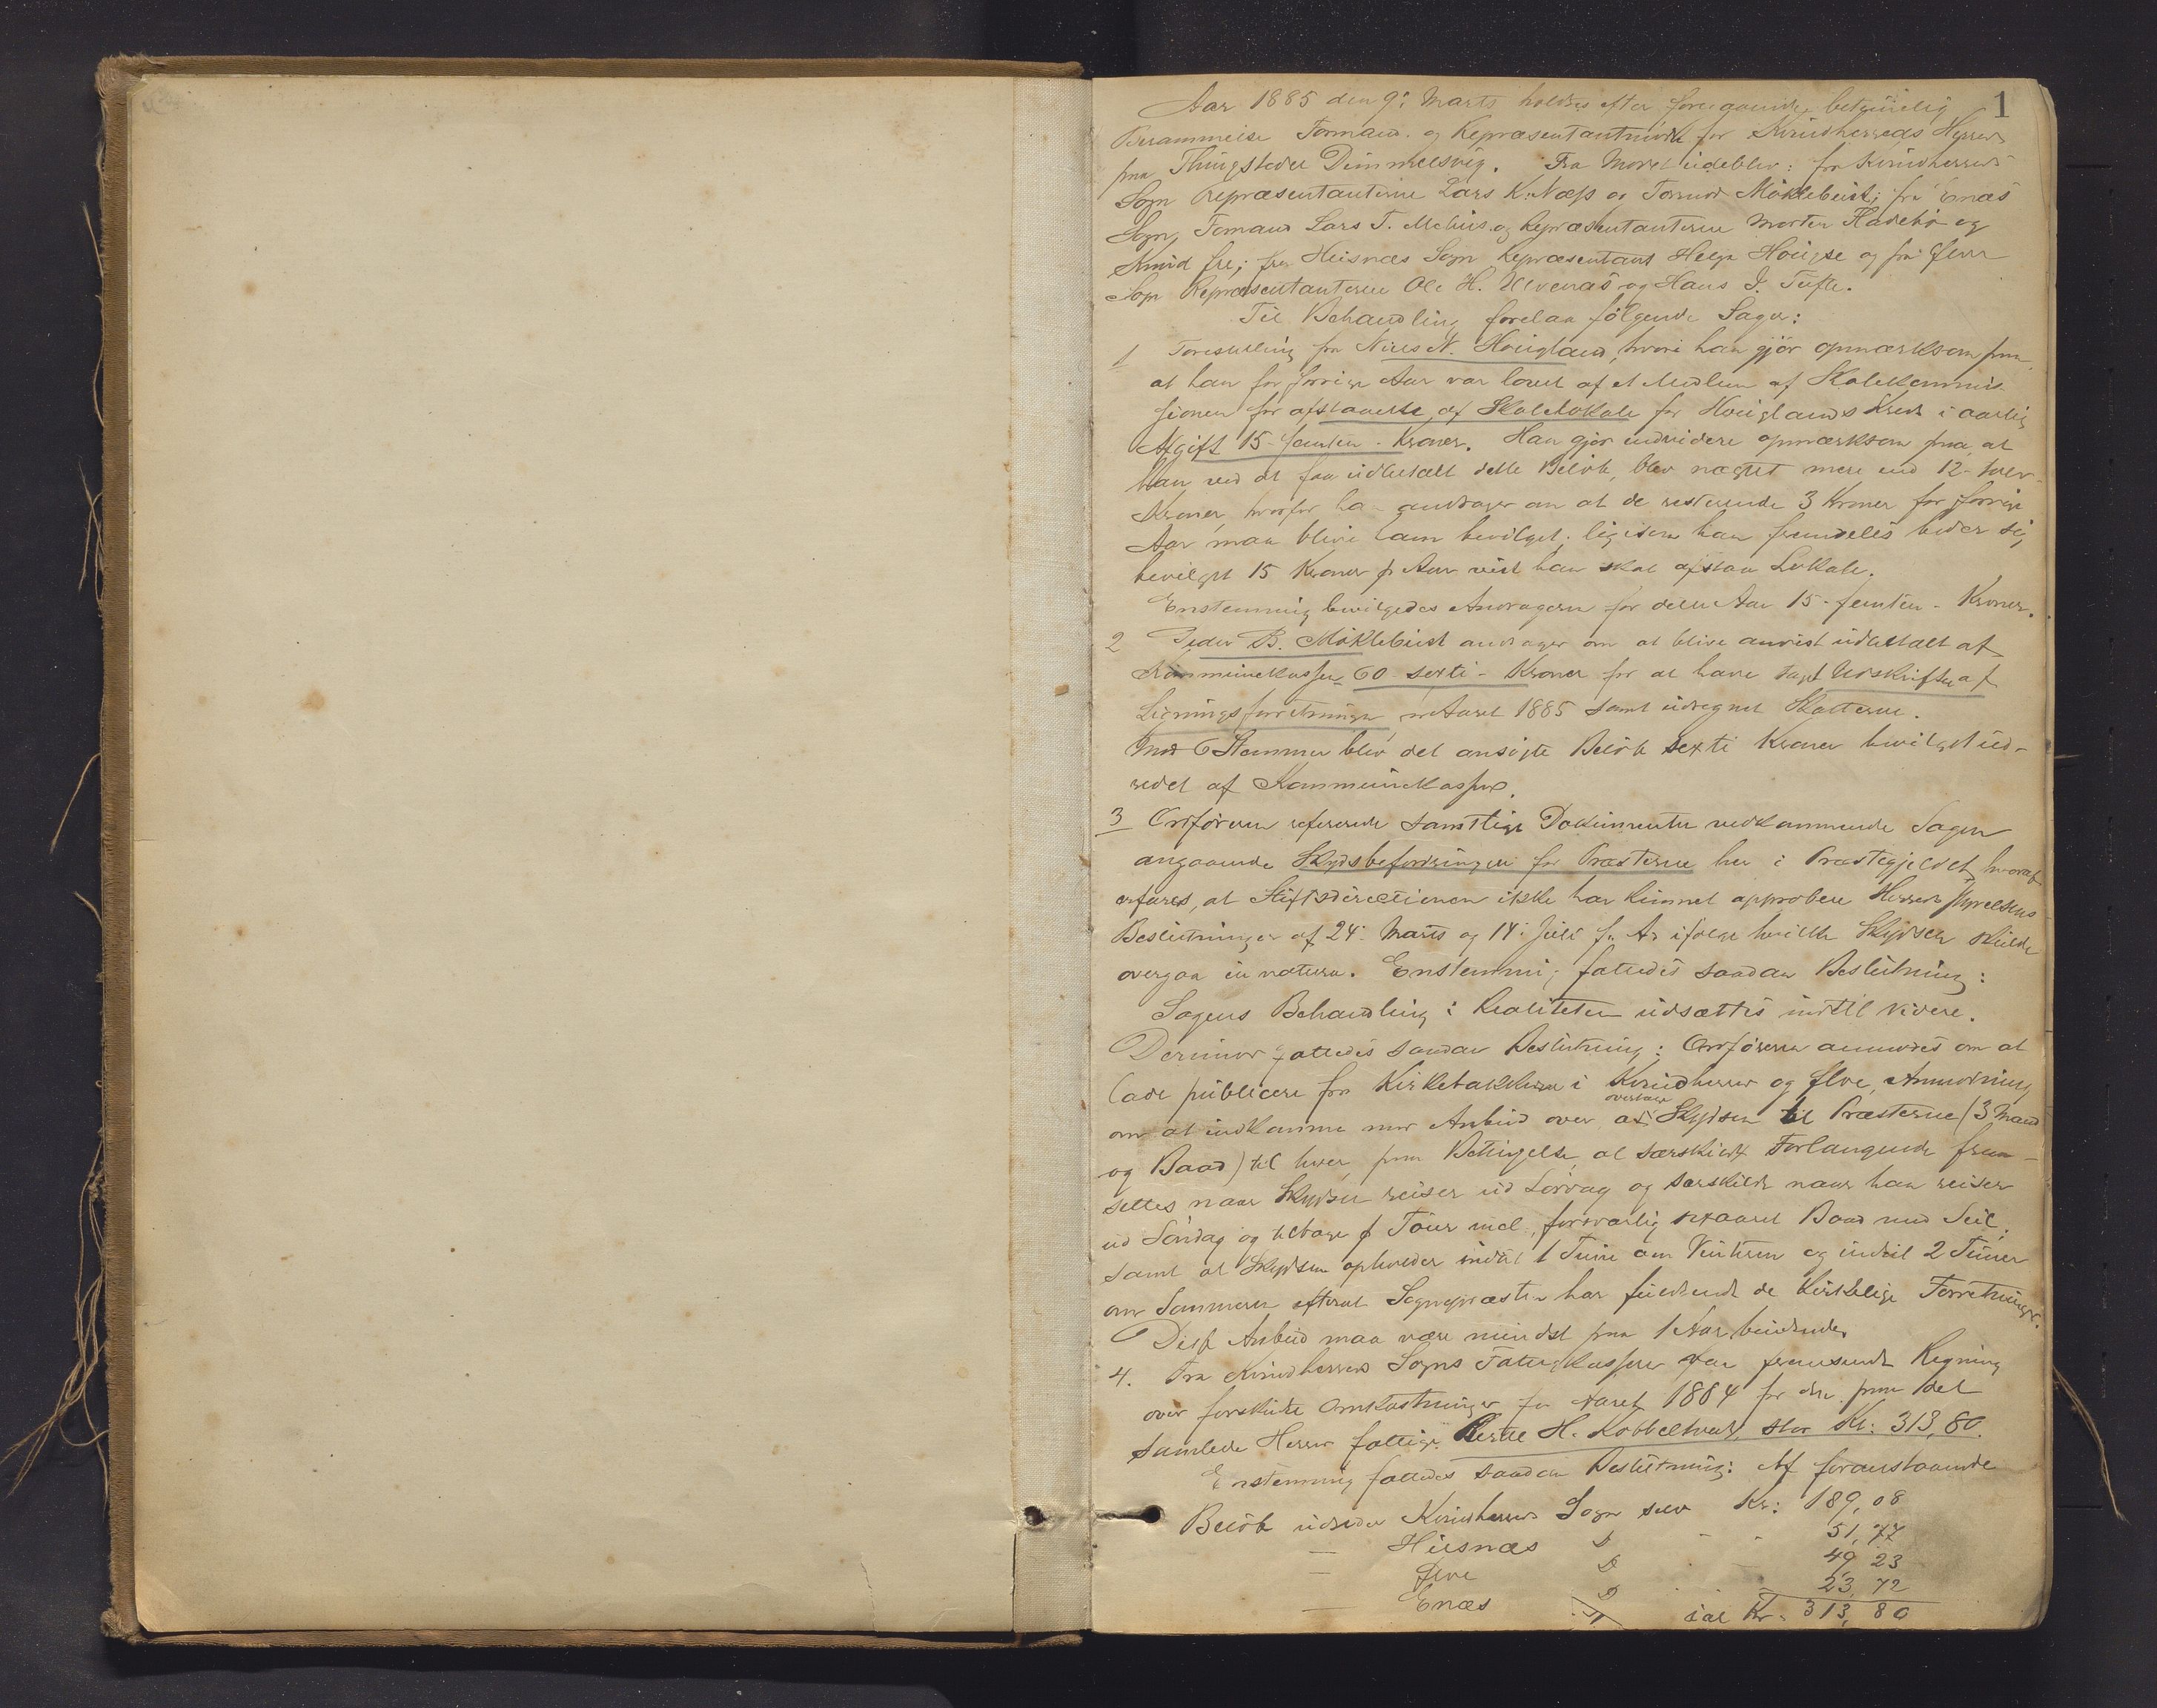 1
Aar 1885 den 9: Marts holdtes efter foregaaende betimelig
Berammelse Formand. og Repræsentantmöde for Kvindherreds Herred
paa Thingstedet Dimmelsvig. Fra Mödet udeblev: fra Kvindherred
Sogn Repræsentanterne Lars K. Næss og Tormod Möklebust; fra Enæs
Sogn, Formand Lars T. Mehus og Repræsentanterne Morten Hadebö og
Knud Fre; fra Husnæs Sogn Repræsentant Helge Hougse og fra Ølve
Sogn Repræsentanterne Ole H. Ulvenæs og Hans J. Tufte.
Til Behandling forelaa fölgende Sager:
1 Forestilling fra Niels N. Hougland, hvori han gjör opmærksom paa
at han for forrige Aar var lovet af et Medlem af Skolekommis
sionen for afstaaelse af Skolelokale for Houglands Kreds i aarlig
Afgift 15 - femten - Kroner. Han gjör endvidere opmærksom paa, at
han ved at faa udbetalt dette Belöb, blev nægtet mere end 12 - tolv -
Kroner, hvorfor ha- andrager om at de resterende 3 Kroner for forrige
Aar maa blive ham bevilget; ligesom han fremdeles beder sig
bevilget 15 Kroner p Aar vist han skal afstaa Lokale.
Enstemmig bevilgedes Andrageren for dette Aar 15 - femten - Kroner.
2 Peder B. Möklebust andrager om at blive anvist udbetalt af
Kommunekassen 60 - sexti - Kroner for at have taget Udskrifter af
Ligningsforretningen for Aaret 1885 samt udregnet Skatterne.
Mod 6 Stemmer blev det ansögte Belöb sexti Kroner bevilget ud-
redet af Kommunekassen.
3 Ordföreren refererede samtlige Dokumenter vedkommende Sagen
angaaende Skydsbefordringen for Præsterne her i Præstegjeldet, hvoraf
erfares, at Stiftsdirectionen ikke har kunnet approbere Herredsstyrelsens
Beslutninger af 24: Marts og 14: Juli f. A. ifölge hvilke Skydsen skulde
overgaa in natura. Enstemmig fattedes saadan Beslutning:
Sagens Behandling i Realiteten udsættes indtil videre.
Derimod fattedes saadan Beslutning: Ordföreren anmodes om at
lade publicere fra Kirkebakken i Kvindherred og Ølve, Anmodning
om at indkomme med Anbud over at overtage Skydsen til Præsterne (3 Mand
og Baad) til hver, paa Betingelse at særskildt Forlangende frem-
settes naar Skydsen reiser ud Lördag og særskildt naar han reiser
ud Söndag og tilbage p Tour incl. forsvarlig sexaaret Baad med Seil;
samt at Skydsen opholder indtil 1 Time om Vinteren og indtil 2 Timer
om Sommeren efterat Sognepræsten har fuldendt de kirkelige Forretninger.
Disse Anbud maa være mindst paa 1 Aar bindende.
4. Fra Kvindherred Sogns Fattigkasse var fremsendt Regning
over forskudte Omkostninger for Aaret 1884 for den paa det
samlede Herred fattige H. Kobbeltvedt, stor Kr: 313,80.
Enstemmig fattedes saadan Beslutning: Af foranstaaende
Belöb udreder Kvindherred Sogn selv Kr: 189,08
— Husnæs D - - 51,77
— Ølve D - - 49,23
— Enæs D - - 23,72
ial Kr. 313,80